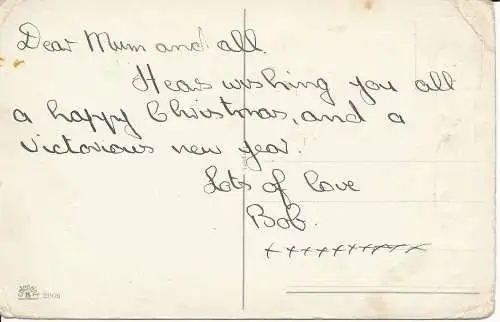 Dear Mum and all.
Hears wishing you all
a happy Christmas, and a
victorious new year.
Lots of love
Bob.
xxxxxxxxxxx